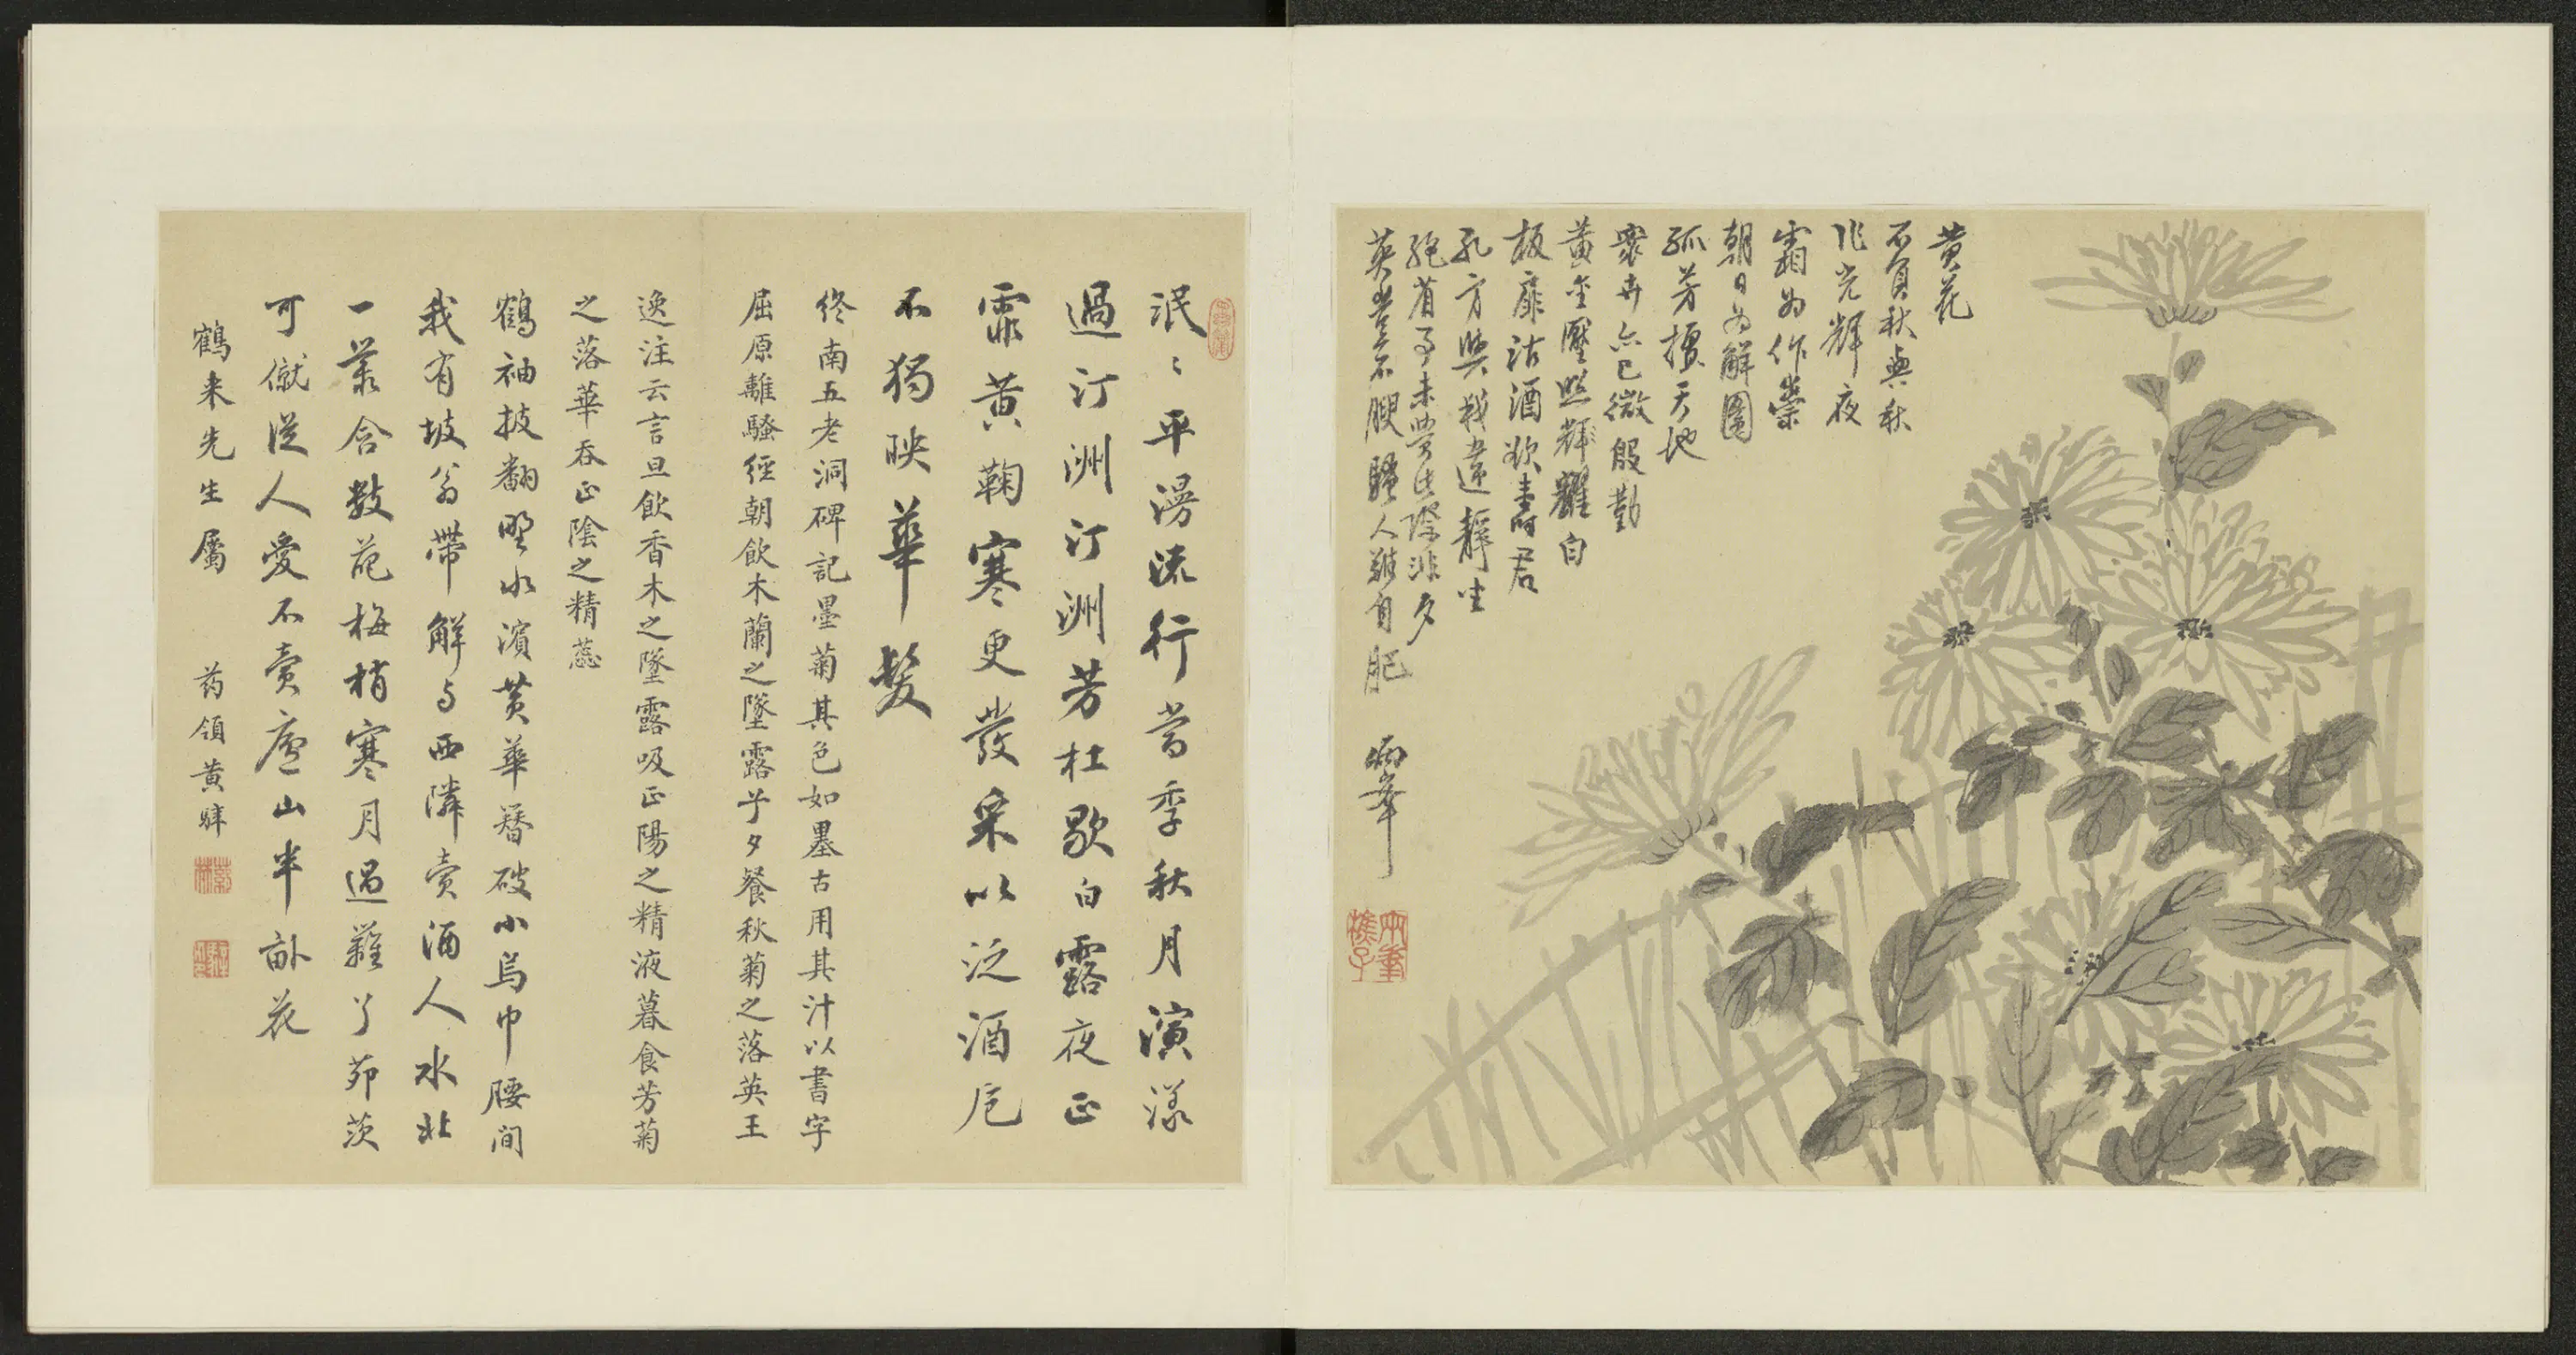 黄花
不負秋與秋
作光輝夜
霜為作祟
朝日為解圍
孤芳擅天地
衆卉亦已微殷勤
黃金靨照輝耀白
板扉沽酒欲壽君
孔方與我違靜坐
絕省事未覺此際非夕
英豈不腴騷人雖自肥
泯〻平漫流行當季秋月演漾
過汀洲汀洲芳杜歇白露夜正
霏黃鞠寒更發采以泛酒卮
不獨映華髮
終南五老洞碑記墨菊其色如墨古用其汁以書字
屈原離騷經朝飲木蘭之墜露兮夕餐秋菊之落英王
逸注云言旦飲香木之墜露吸正陽之精液暮食芳菊
之落華吞正陰之精蕊
鶴袖披翻野水濱黃華簪破小烏巾腰間
我有坡翁帶解與西隣賣酒人水北
一叢含數蕊梅梢寒月過籬了茆茨
可僦從人愛不賣廬山半畝花
鶴来先生屬　药領黃